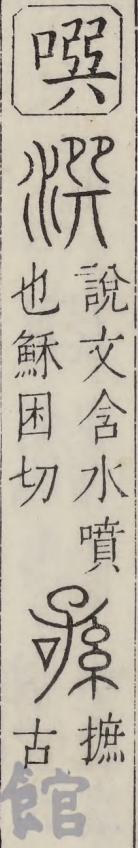 噀
潠
說文含水噴
也穌困切
孫
摭
古
館